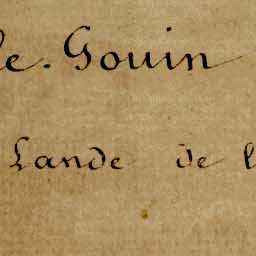 le. Gouin
Lande de l